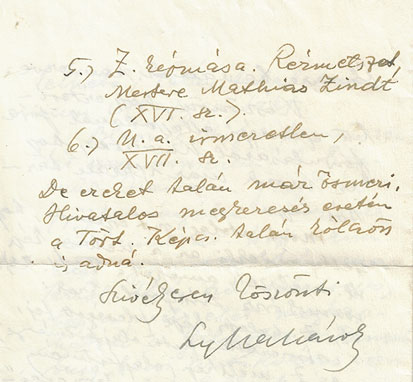 5.) Z. képmása. Rézmetszet,
Mestere Mathias Zindt
(XVI. sz.).
6.) U. a. ismeretlen,
XVII. sz.
De ezeket talán már ösmeri.
Hivatalos megkeresés esetén
a Tört. Képcs. talán kölcsön
is adná.
Szívélyesen köszönti
Lyka Károly